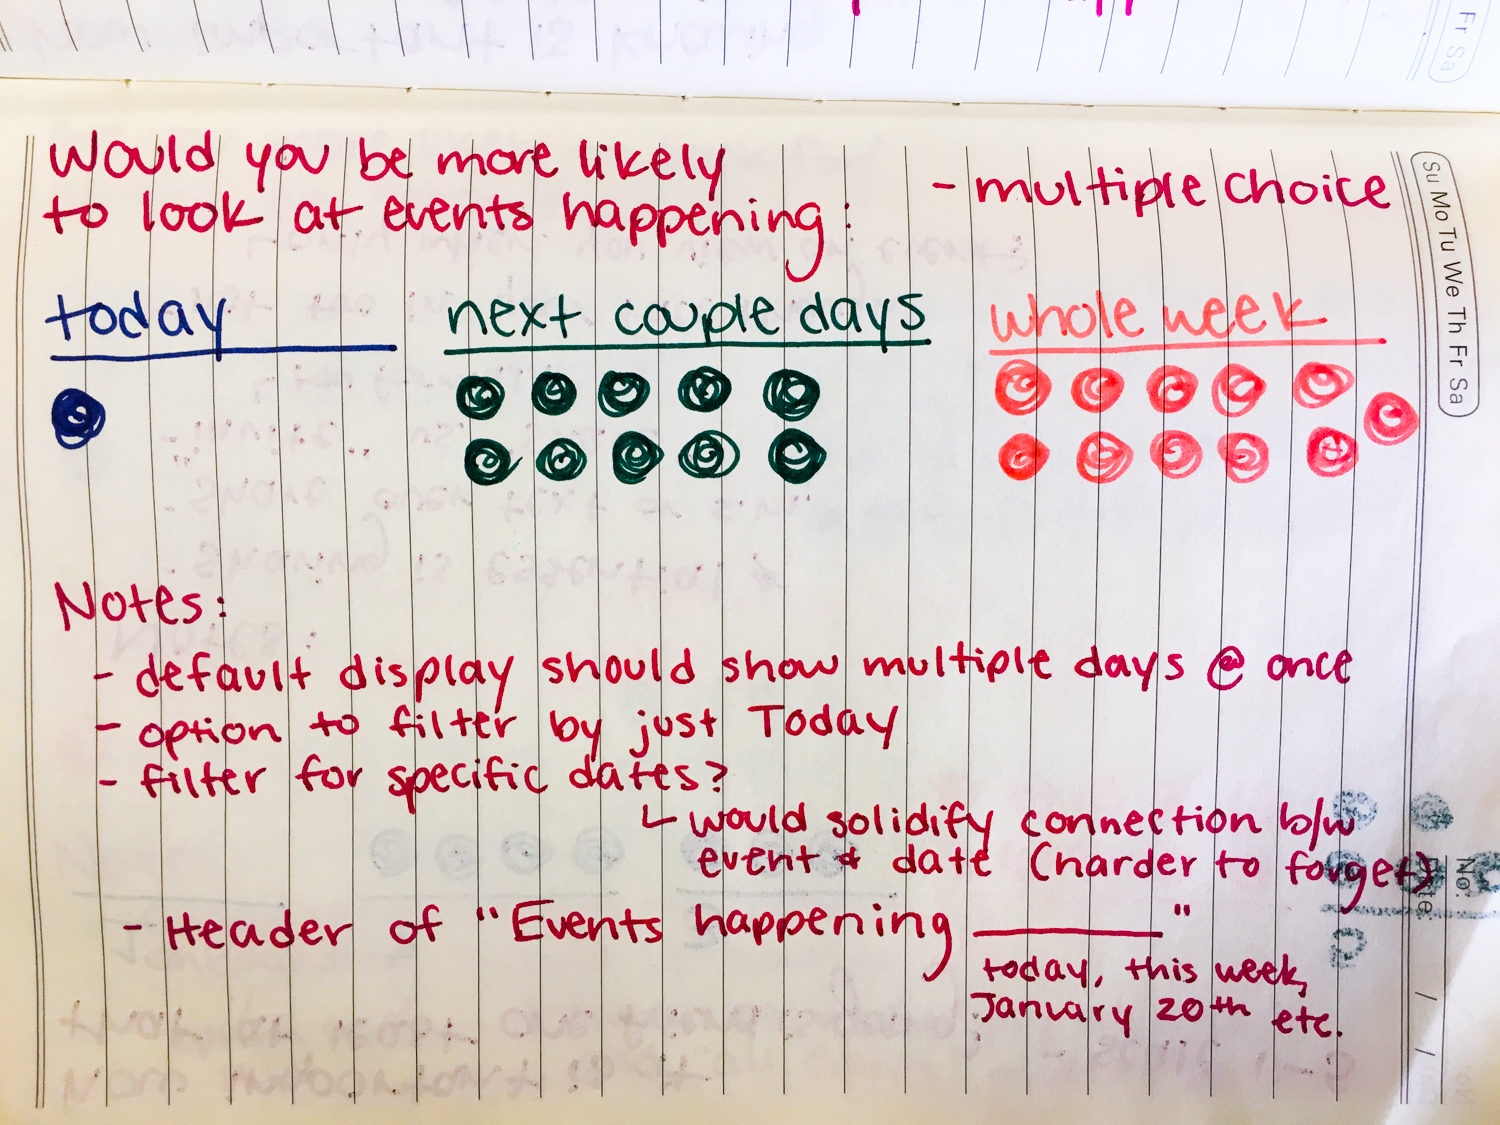 Would you be more likely
to look at events happening:
- multiple choice
today
next couple days
whole week
Notes:
- default display should show multiple days @ once
- option to filter by just Today
- filter for specific dates?
would solidify connection b/w
event & date (harder to forget)
- Header of "Events happening ______"
today, this week,
January 20th etc.
Su Mo Tu We Th Fr Sa
Fr Sa
No: